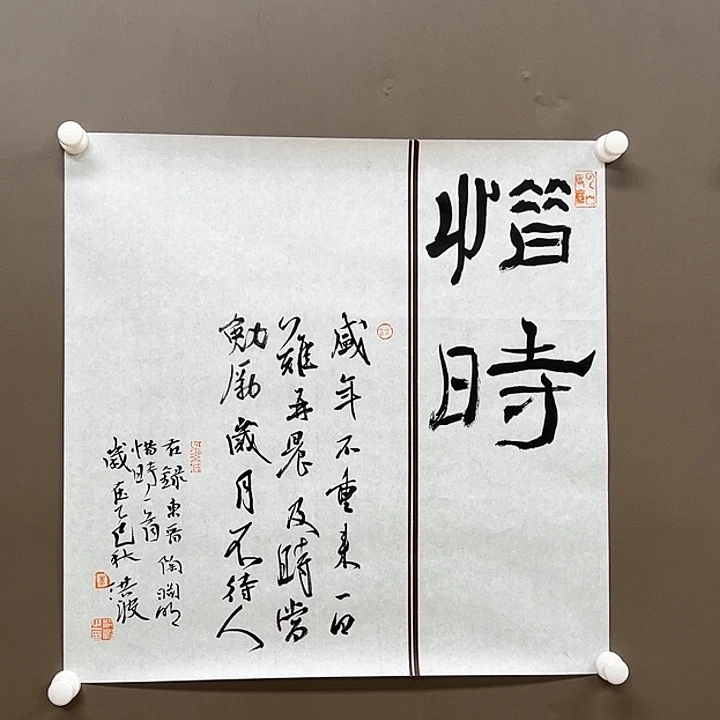 惜時
盛年不重来一日
難再晨及時當
勉勵歲月不待人
右録東晋陶渊明
惜時一首
歲在乙巳秋洪波